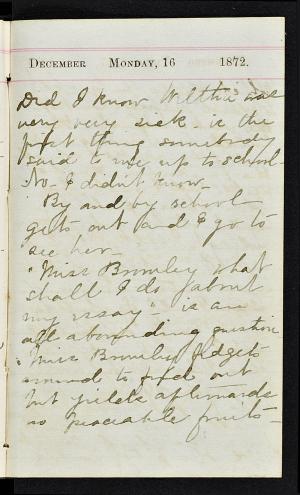 December Monday, 16 1872.
Did I know Welthie was
very very sick. is the
first thing somebody
said to me up to school.
No- I didn't know-
By and by school
gets out and I go to
see her-
"Miss Bromley what
shall I do about
my essay"- is an
all abounding question
Miss Bromley fidgets
around to find out
but yields afterwards
no peaceable fruits-